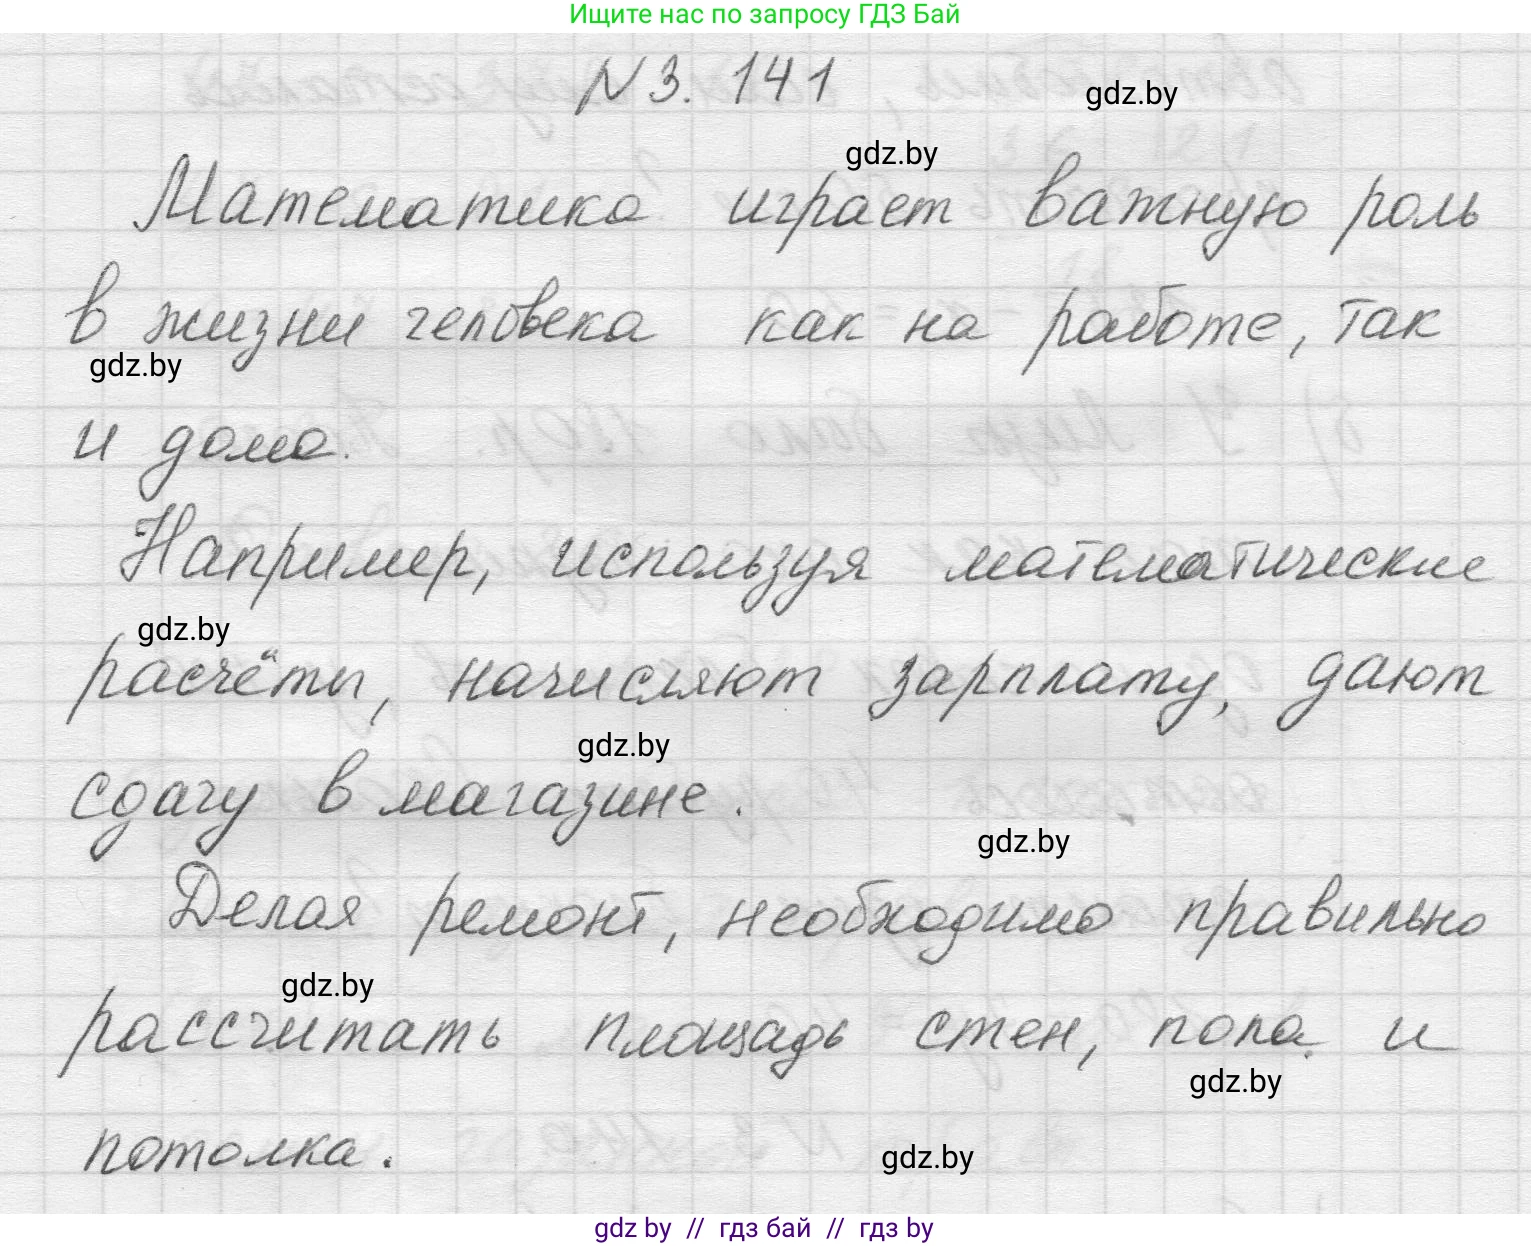 Ищите нас по запросу ГДЗ Бай
N 3. 141
gdz.by
gdz.by
Математика играет важную роль
в жизни человека как на работе, так
gdz.by
и дома.
Например, используя математические
gdz.by
расчёты, начисляют зарплату, дают
gdz.by
сдачу в магазине.
gdz.by
Делая ремонт, необходимо правильно
gdz.by
рассчитать площадь стен, пола и
gdz.by
потолка.
gdz.by
gdz by // гдз бай // гдз by